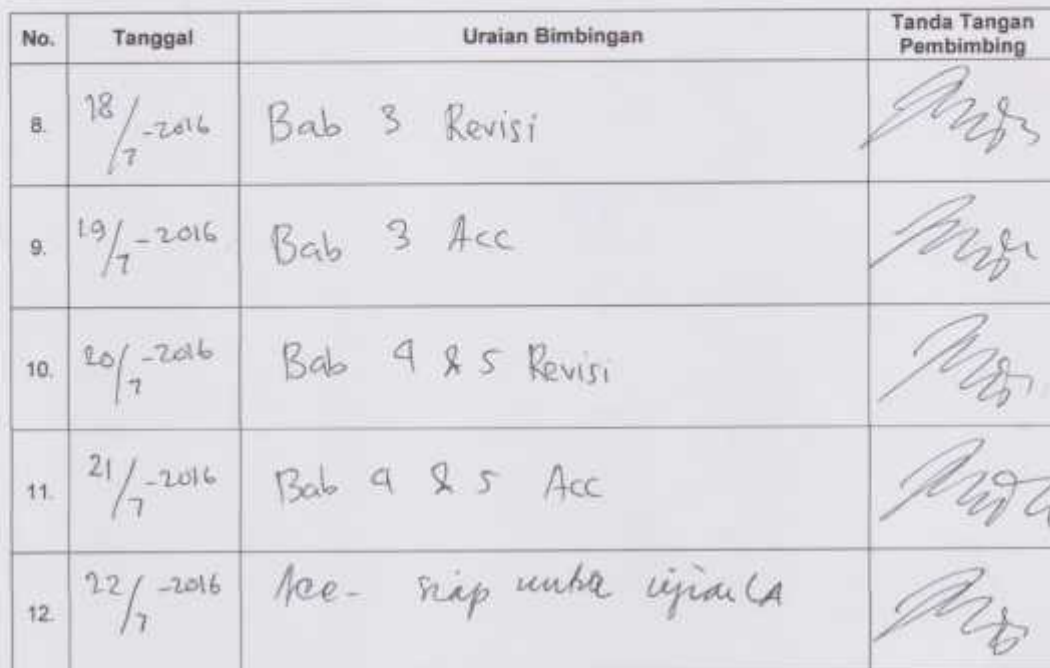 No. Tanggal Uraian Bimbingan Tanda Tangan
Pembimbing
8. 18/7-2016 Bab 3 Revisi
9. 19/7-2016 Bab 3 Acc
10. 20/7-2016 Bab 4 & 5 Revisi
11. 21/7-2016 Bab 4 & 5 Acc
12. 22/7-2016 Acc- siap untuk ujian LA